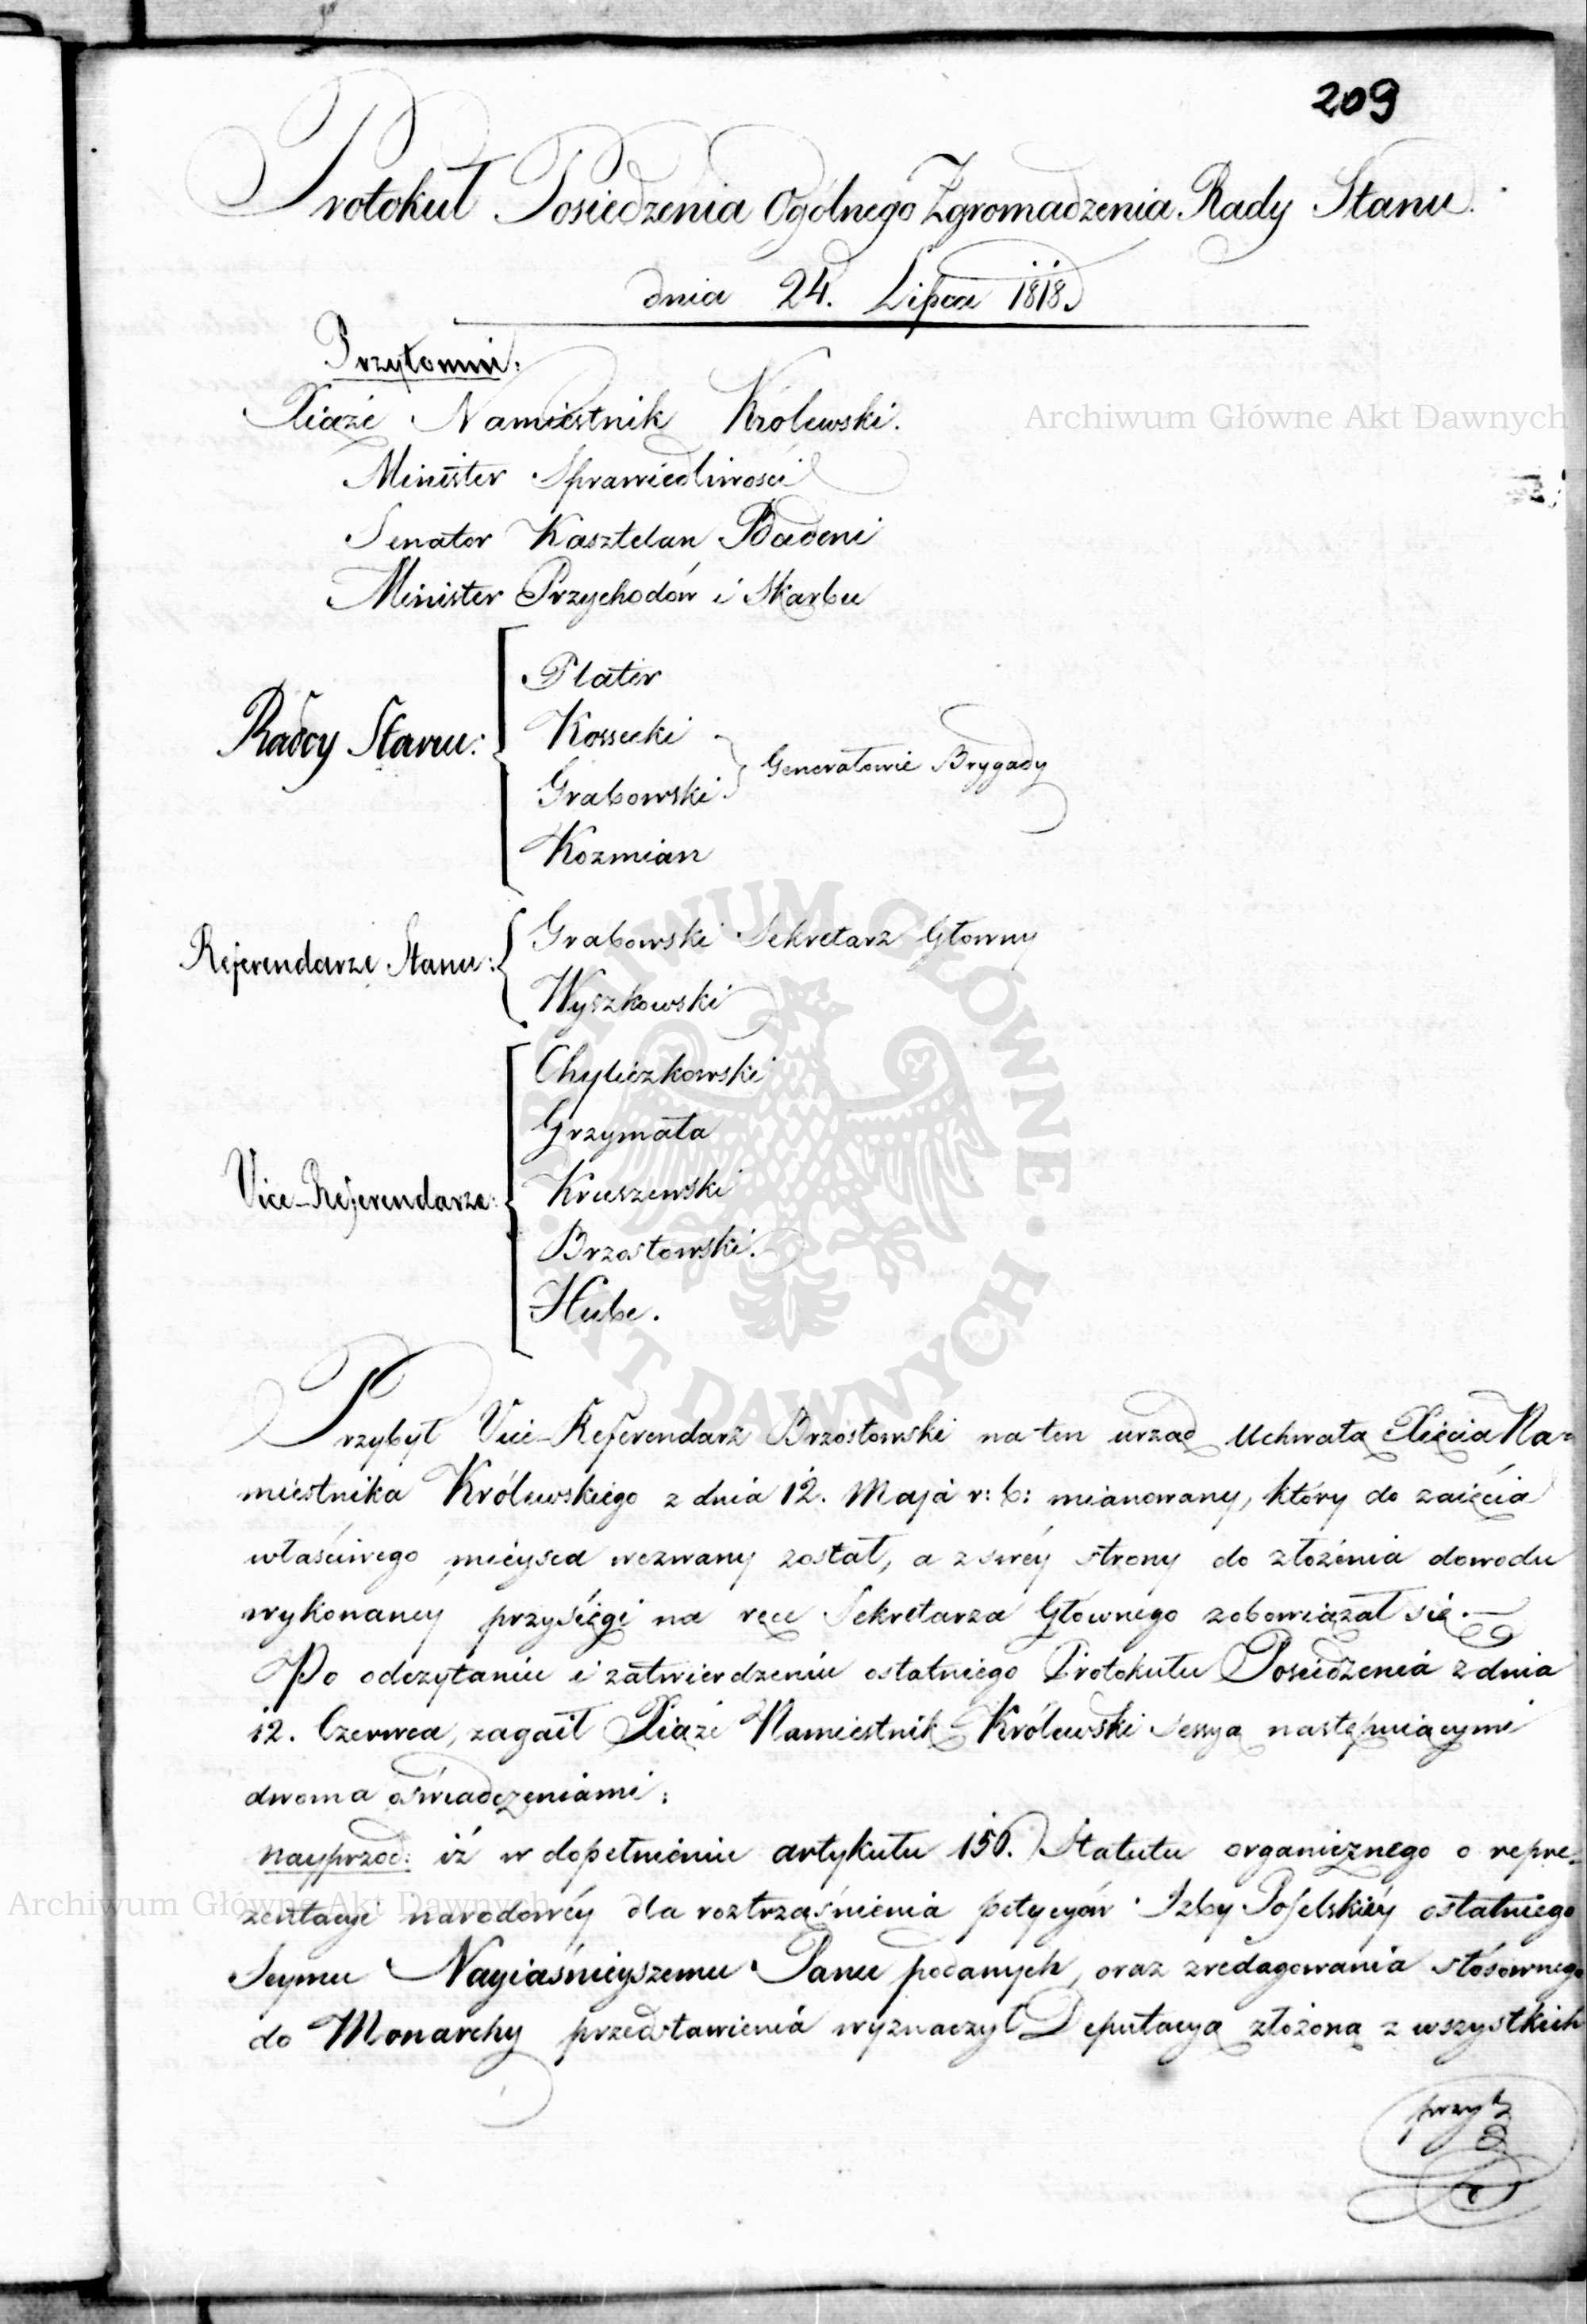 209
Protokuł Posiedzenia Ogólnego Zgromadzenia Rady Stanu.
dnia 24. Lipca 1818.
Przytomni:
Xiąże Namiestnik Królewski.
Archiwum Główne Akt Dawnych
Minister Sprawiedliwości
Senator Kasztelan Badeni
Minister Przychodów i Skarbu
Radcy Stanu:
Plater
Kossecki
Grabowski
Generałowie Brygady
Kozmian
Referendarze Stanu:
Grabowski Sekretarz Głowny
Wyszkowski
Vice-Referendarze:
Chyliczkowski
Grzymała
Kruszewski
Brzostowski.
Hube.
ARCHIWUM GŁÓWNE · AKT DAWNYCH ·
Przybył Vice-Referendarz Brzostowski na ten urząd Uchwałą Xięcia Na=
miestnika Królewskiego z dnia 12. Maja r: b: mianowany, który do zaięcia
właściwego mieysca wezwany został, a z swéy strony do złożenia dowodu
wykonaney przysięgi na ręce Sekretarza Głownego zobowiązał się.
Po odczytaniu i zatwierdzeniu ostatniego Protokułu Posiedzenia z dnia
12. Czerwca, zagaił Xiąże Namiestnik Królewski Sessyą następuiącymi
dwoma oświadczeniami:
Nayprzod: iż w dopełnieniu artykułu 150. Statutu organicznego o repre=
zentacyi narodowéy dla roztrząśnienia petycyów Izby Poselskiéy ostatniego
Archiwum Główne Akt Dawnych
Seymu Nayiaśnieyszemu Panu podanych, oraz zredagowania stósownego
do Monarchy przedstawienia wyznaczył Deputacyą złożoną z wszystkich
przyt